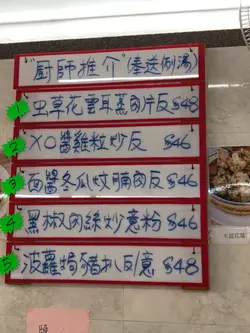 "廚師推介"(奉送例湯)
1 虫草花雲耳蒸肉片反 $48
2 XO醬雞粒炒反 $46
3 面醬冬瓜炆腩肉反 $46
4 黑椒肉絲炒意粉 $46
5 菠蘿焗豬扒反/意 $48